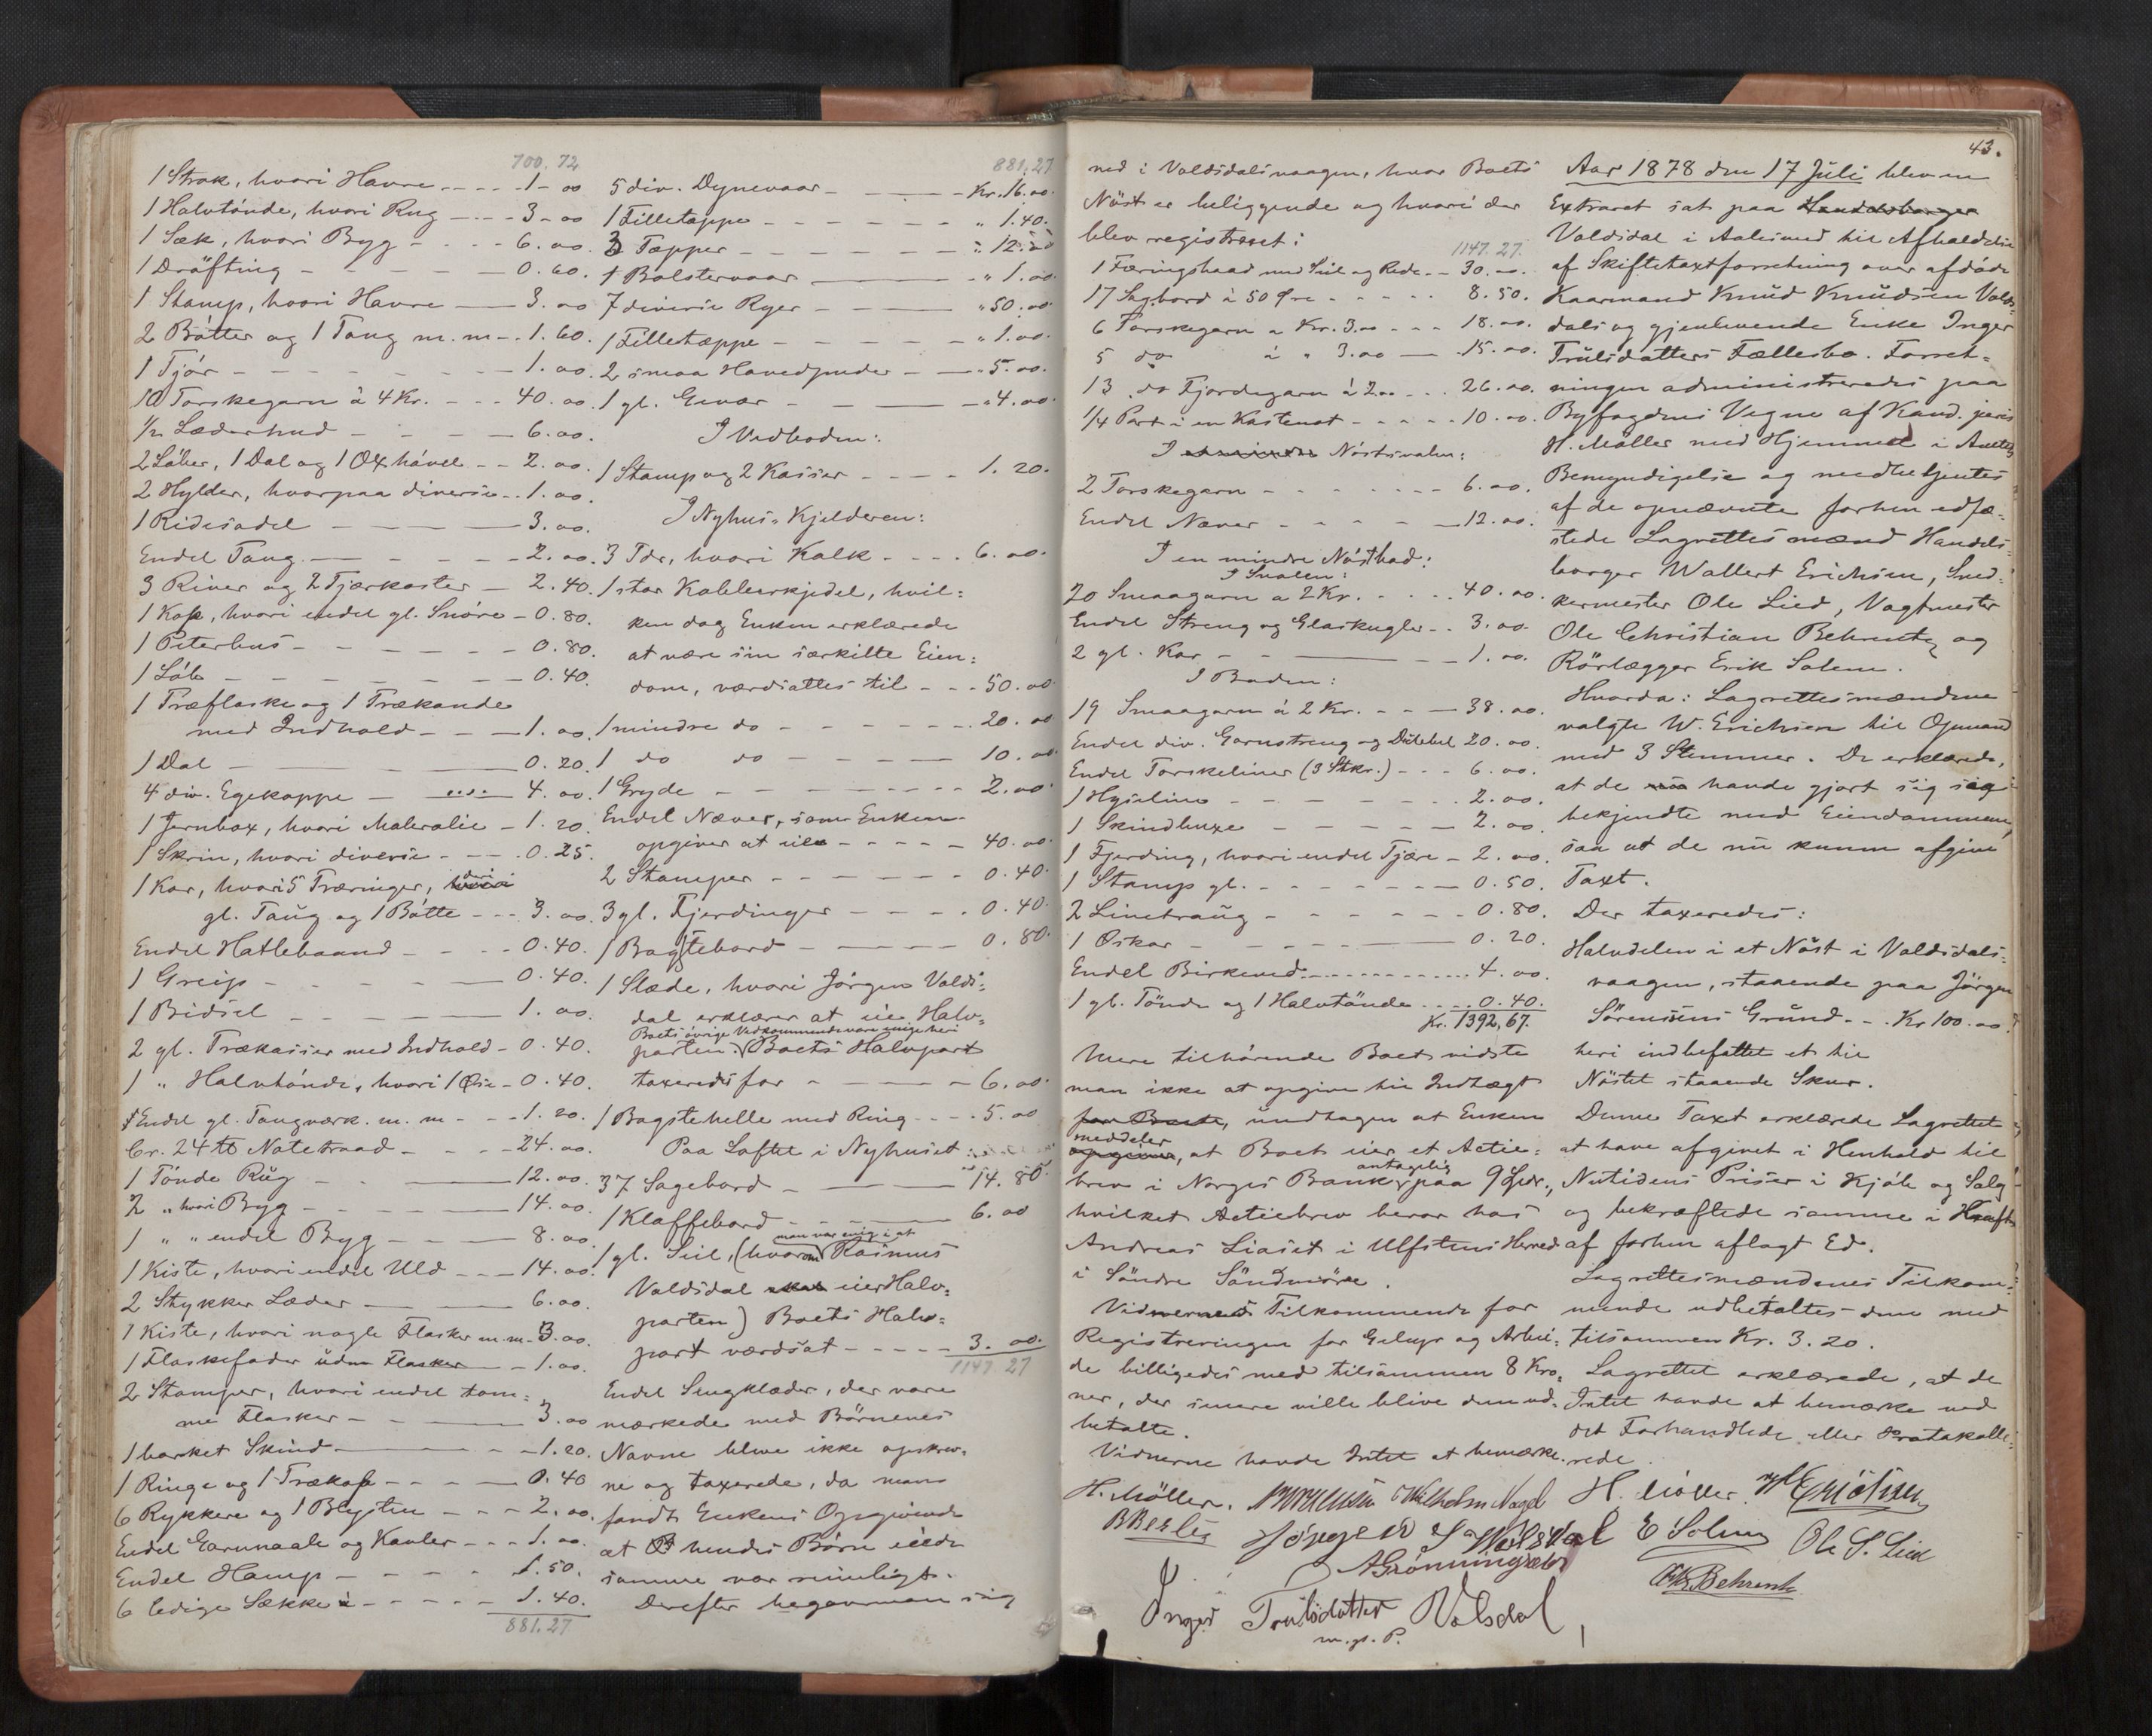 700.72
1 Strok, hvori Havre - - - - 1 - 00
1 Halvtönde, hvori Rug - - - - 3 - 00
1 Sæk, hvori Byg - - - - 6.00.
1 Dröfting - - - - - 0.60.
1 Stamp, hvori Havre - 3.00
2 Bötter og 1 Toug m.m - 1.60.
1 Tjór - - - - - - 1.00.
10 Torskegarn à 4 Kr. - - - 40.00.
1/2 Læderhud - - - - 6.00.
2 Löber, 1 Dal og 1 Oxhövel - - 2.00.
2 Hylder, hvorpaa diverse - - 1.00.
1 Ridesadel - - - 3.00.
Endel Toug - - - - 2.00.
3 River og 2 Tjærkoster - 2.40.
1 Kop, hvori endel gl. Snöre - 0.80.
1 Peterhus - - - - - 0.80.
1 Löb - - - - - - 0.40.
1 Træflaske og 1 Trækande
med Indhold - - - 1.00.
1 Dal - - - 0.20.
4 div. Egekoppe - - - 4.00.
1 Jernbox, hvori Maleralie - 1.20.
1 Skrin, hvori diverse - - - 0.25.
1 Kar, hvori 5 Træringer, hvori deri
gl. Taug og 1 Bötte - - - 3.00.
Endel Hatlebaand - - - 0.40.
1 Greip - - - - 0.40.
1 Bidsel - - - - 1.00.
2 gl. Trækasser med Indhold - 0.40.
1 " Halvtönde, hvori 1 Öse - 0.40.
Endel gl. Tougværk. m. m - - - 1.20.
Cr. 24 ℔ Notetraad - - - 24.00.
1 Tönde Rug - - - 12.00.
2 " hvori Byg - - - 14.00.
1 " " endel Byg - - - 8.00.
1 Kiste, hvori endel Uld - - - 14.00.
2 Stykker Læder - - - 6.00.
1 Kiste, hvori nogle Flasker m.m. 3.00.
1 Flaskefoder uden Flasker - - 1.00.
2 Stamper, hvori endel tom=
me Flasker - - - 3.00
1 barket Skind - - - 1.20.
1 Ringe og 1 Trækop - - - 0.40
6 Rykkere og 1 Blysten - - - 2.00.
Endel Garnnaale og Kavler - - - 1.00.
Endel Hamp - - - - 1.50.
6 ledige Sække à - - - - 1.40.
881.27
881.27
5 div. Dynevaar - - - Kr. 16.00.
1 Filletæppe - - - - " 1.40.
3 Tæpper - - - - " 12.00
1 Bolstervaar - - - " 1.00
7 diverse Ryer - - - " 50.00
1 Filletæppe - - - - " 1.00.
2 smaa Hovedpuder - - " 5.00.
1 gl. Gevær - - - " 4.00
I Vedboden:
1 Stamp og 2 Kasser - - - - 1.20.
I Nyhus-Kjelderen:
3 Tdr, hvori Kalk - - - - 6.00.
1 stor Kobberkjedel, hvil=
ken dog Enken erklærede
at være sin særkilte Eien=
dom, værdsattes til - - - 50.00
1 mindre do - - - - - 20.00
1 do do - - - - - 10.00
1 Gryde - - - - - - 2.00
Endel Næver, som Enken
opgiver at eie - - - - - 40.00.
2 Stamper - - - - - 0.40.
3 gl. Fjerdinger - - - - 0.40.
1 Bagstebord - - - - 0.80.
1 Slæde, hvori Jörgen Valds=
dal erklærer at eie Halv=
Boets övrige Vedkommende vare enige heri
parten. Boets Halvpart
taxeredes for - - - - 6.00.
1 Bagstehelle med Ring - - - 5.00
Paa Loftet i Nyhuset
37 Sagebord - - - 14.80
1 Klaffebord - - - - 6.00
man var enig i at
1 gl. Seil, (hvorom Rasmus
Valdsdal skal eier Halv=
parten) Boets Halv=
part værdsat - - - - - 3.00.
1147 27
Endel Sengklæder, der vare
mærkede med Börnenes
Navne bleve ikke opskrev=
ne og taxerede, da man
fandt Enkens Opgivende
at hendes Börn eiede
samme var rimeligt.
Derefter begav man sig
ned i Valdsdalsvaagen, hvor Boets
Nöst er beliggende og hvori der
blev registreret:
1147.27.
1 Færingsbaad med Seil og Rede - - 30.00.
17 Sagbord à 50 Öre - - - - - 8.50.
6 Torskegarn a Kr. 3.00 - - - 18.00.
5 do à " 3.00 - 15.00.
13 do Fjordegarn à 2.00 - - - 26.00.
1/4 Part i en Kastenot - - - - - 10.00.
I Nöstsvalen:
2 Torskegarn - - - - - - - 6.00.
Endel Næver - - - - - 12.00.
I en mindre Nöstbod:
I Svalen:
20 Smaagarn a 2 Kr. - - - - 40.00.
Endel Streng og Glaskugler - - 3.00.
2 gl. Kar - - - - 1.00.
I Boden:
19 Smaagarn à 2 Kr. - - - 38.00.
Endel div. Garnstreng og Dubbel 20.00.
Endel Torskeliner (3 Stkr.) - - - 6.00.
1 Hyseline - - - - - - 2.00.
1 Skindbuxe - - - - - 2.00.
1 Fjerding, hvori endel Tjære - 2.00.
1 Stamp gl. - - - - - - 0.50.
2 Linetraug - - - - - 0.80.
1 Öskar - - - - - 0.20.
Endel Birkeved - - - - - 4.00.
1 gl. Tönde og 1 Halvtönde - - - - 0.40.
Kr. 1392,67.
Mere tilhörende Boet vidste
man ikke at opgive til Indtægt
for Boete, undtagen at Enken
meddeler
opgiver, at Boet eier et Actie=
antagelig
brev i Norges Bank paa 9 Spdr.,
hvilket Actiebrev beror hos
Andreas Liaset i Ulfstens Herred
i Söndre Söndmöre.
Vidnernes Tilkommende for
Registreringen for Gebyr og Arbei=
de billigedes med tilsammen 8 Kro=
ner, der senere ville blive dem ud=
betalte.
Vidnerne havde Intet at bemærke.
H. Möller. Wilhelm Nagel
Jörgen
A Grönningsæter
Inger Trulsdatter Valsdal
m. p. P.
43.
Aar 1878 den 17 Juli blev en
Extraret sat paa Handelsborger
Valdsdal i Aalesund til Afholdelse
af Skiftetaxtforretning over afdöde
Kaarmand Knud Knudsen Valds=
dals og gjenlevende Enke Inger
Trulsdatters Fællesbo. Forret=
ningen administreredes paa
Byfogdens Vegne af Kand. juris
H. Möller med Hjemmel i Amtets
Bemyndigelse og medbetjentes
af de opnævnte forhen edfæ=
stede Lagrettesmænd Handels=
borger Wallert Erichsen, Sned=
kermester Ole Lied, Vagtmester
Ole Christian Behrentz og
Rörlægger Erik Solem.
Hvorda: Lagrettesmændene
valgte W. Erichsen til Opmand
med 3 Stemmer. De erklærede,
at de havde gjort sig saa
bekjendte med Eiendommene,
saa at de nu kunne afgive
Taxt.
Der taxeredes:
Halvdelen i et Nöst i Valdsdals=
vaagen, staaende paa Jörgen
Sörensens Grund - - - Kr 100.00.
heri indbefattet et til
Nöstet staaende Skur.
Denne Taxt erklærede Lagrettet
at have afgivet i Henhold til
Nutidens Priser i Kjöb og Salg
og bekræftede samme i Kraft
af forhen aflagt Ed.
Lagrettesmændenes Tilkom=
mende udbetaltes dem med
tilsammen Kr. 3.20.
Lagrettet erklærede, at de
Intet havde at bemærke ved
det Forhandlede eller Protokolle=
rede.
H. Möller
E Solem Ole S. Lied
Behrentz